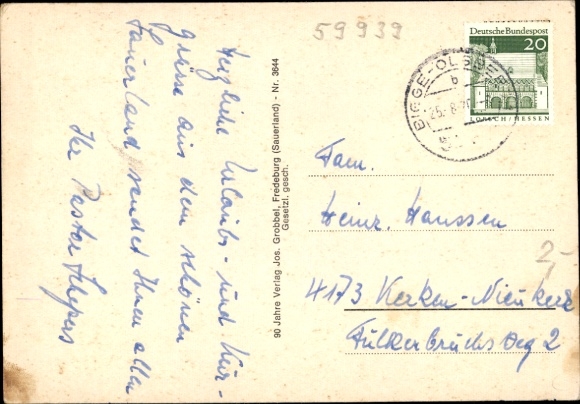 59939
Deutsche Bundespost
20
LORSCH/HESSEN
BIGGE-OLSBERG
b
25.-8.
Herzliche Urlaubs- und Kur-
grüsse aus dem schönen
Sauerland sendet Ihnen allen
Ihr Pastor Schepers
90 Jahre Verlag Jos. Grobbel, Fredeburg (Sauerland) - Nr. 3644
Gesetzl. gesch.
Fam.
Heinz. Hanssen
4173 Kerken-Nieukerk
2,-